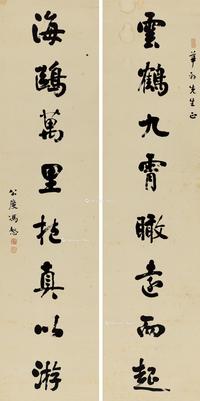 華初先生正
雲鶴九霄瞰遠而起
海鷗萬里抱真以游
公度馮恕